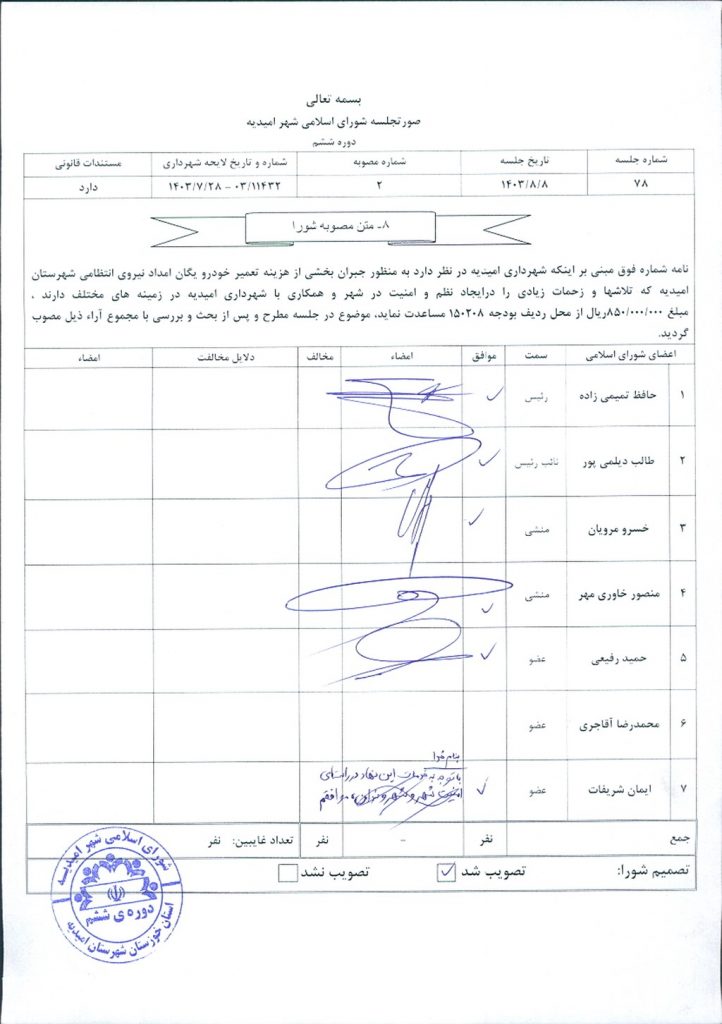 بسمه تعالی
صورتجلسه شورای اسلامی شهر امیدیه
دوره ششم
شماره جلسه تاریخ جلسه شماره مصوبه شماره و تاریخ لایحه شهرداری مستندات قانونی
۷۸ ۱۴۰۳/۸/۸ ۲ ۰۳/۱۱۴۳۲ – ۱۴۰۳/۷/۲۸ دارد
۸- متن مصوبه شورا
نامه شماره فوق مبنی بر اینکه شهرداری امیدیه در نظر دارد به منظور جبران بخشی از هزینه تعمیر خودرو یگان امداد نیروی انتظامی شهرستان
امیدیه که تلاشها و زحمات زیادی را درایجاد نظم و امنیت در شهر و همکاری با شهرداری امیدیه در زمینه های مختلف دارند ،
مبلغ ۸۵۰/۰۰۰/۰۰۰ریال از محل ردیف بودجه ۱۵۰۲۰۸ مساعدت نماید، موضوع در جلسه مطرح و پس از بحث و بررسی با مجموع آراء ذیل مصوب
گردید.
اعضای شورای اسلامی سمت موافق امضاء مخالف دلایل مخالفت امضاء
۱ حافظ تمیمی زاده رئیس ✓
۲ طالب دیلمی پور نائب رئیس ✓
۳ خسرو مرویان منشی ✓
۴ منصور خاوری مهر منشی ✓
۵ حمید رفیعی عضو ✓
۶ محمدرضا آقاجری عضو
بنام خدا
با توجه به خدمات این نهاد در راستای
۷ ایمان شریفات عضو ✓
امنیت شهر و شهروندان، موافقم
جمع نفر - نفر تعداد غایبین: نفر
تصمیم شورا: تصویب شد ☑ تصویب نشد ☐
شورای اسلامی شهر امیدیه
دوره ی ششم
استان خوزستان شهرستان امیدیه